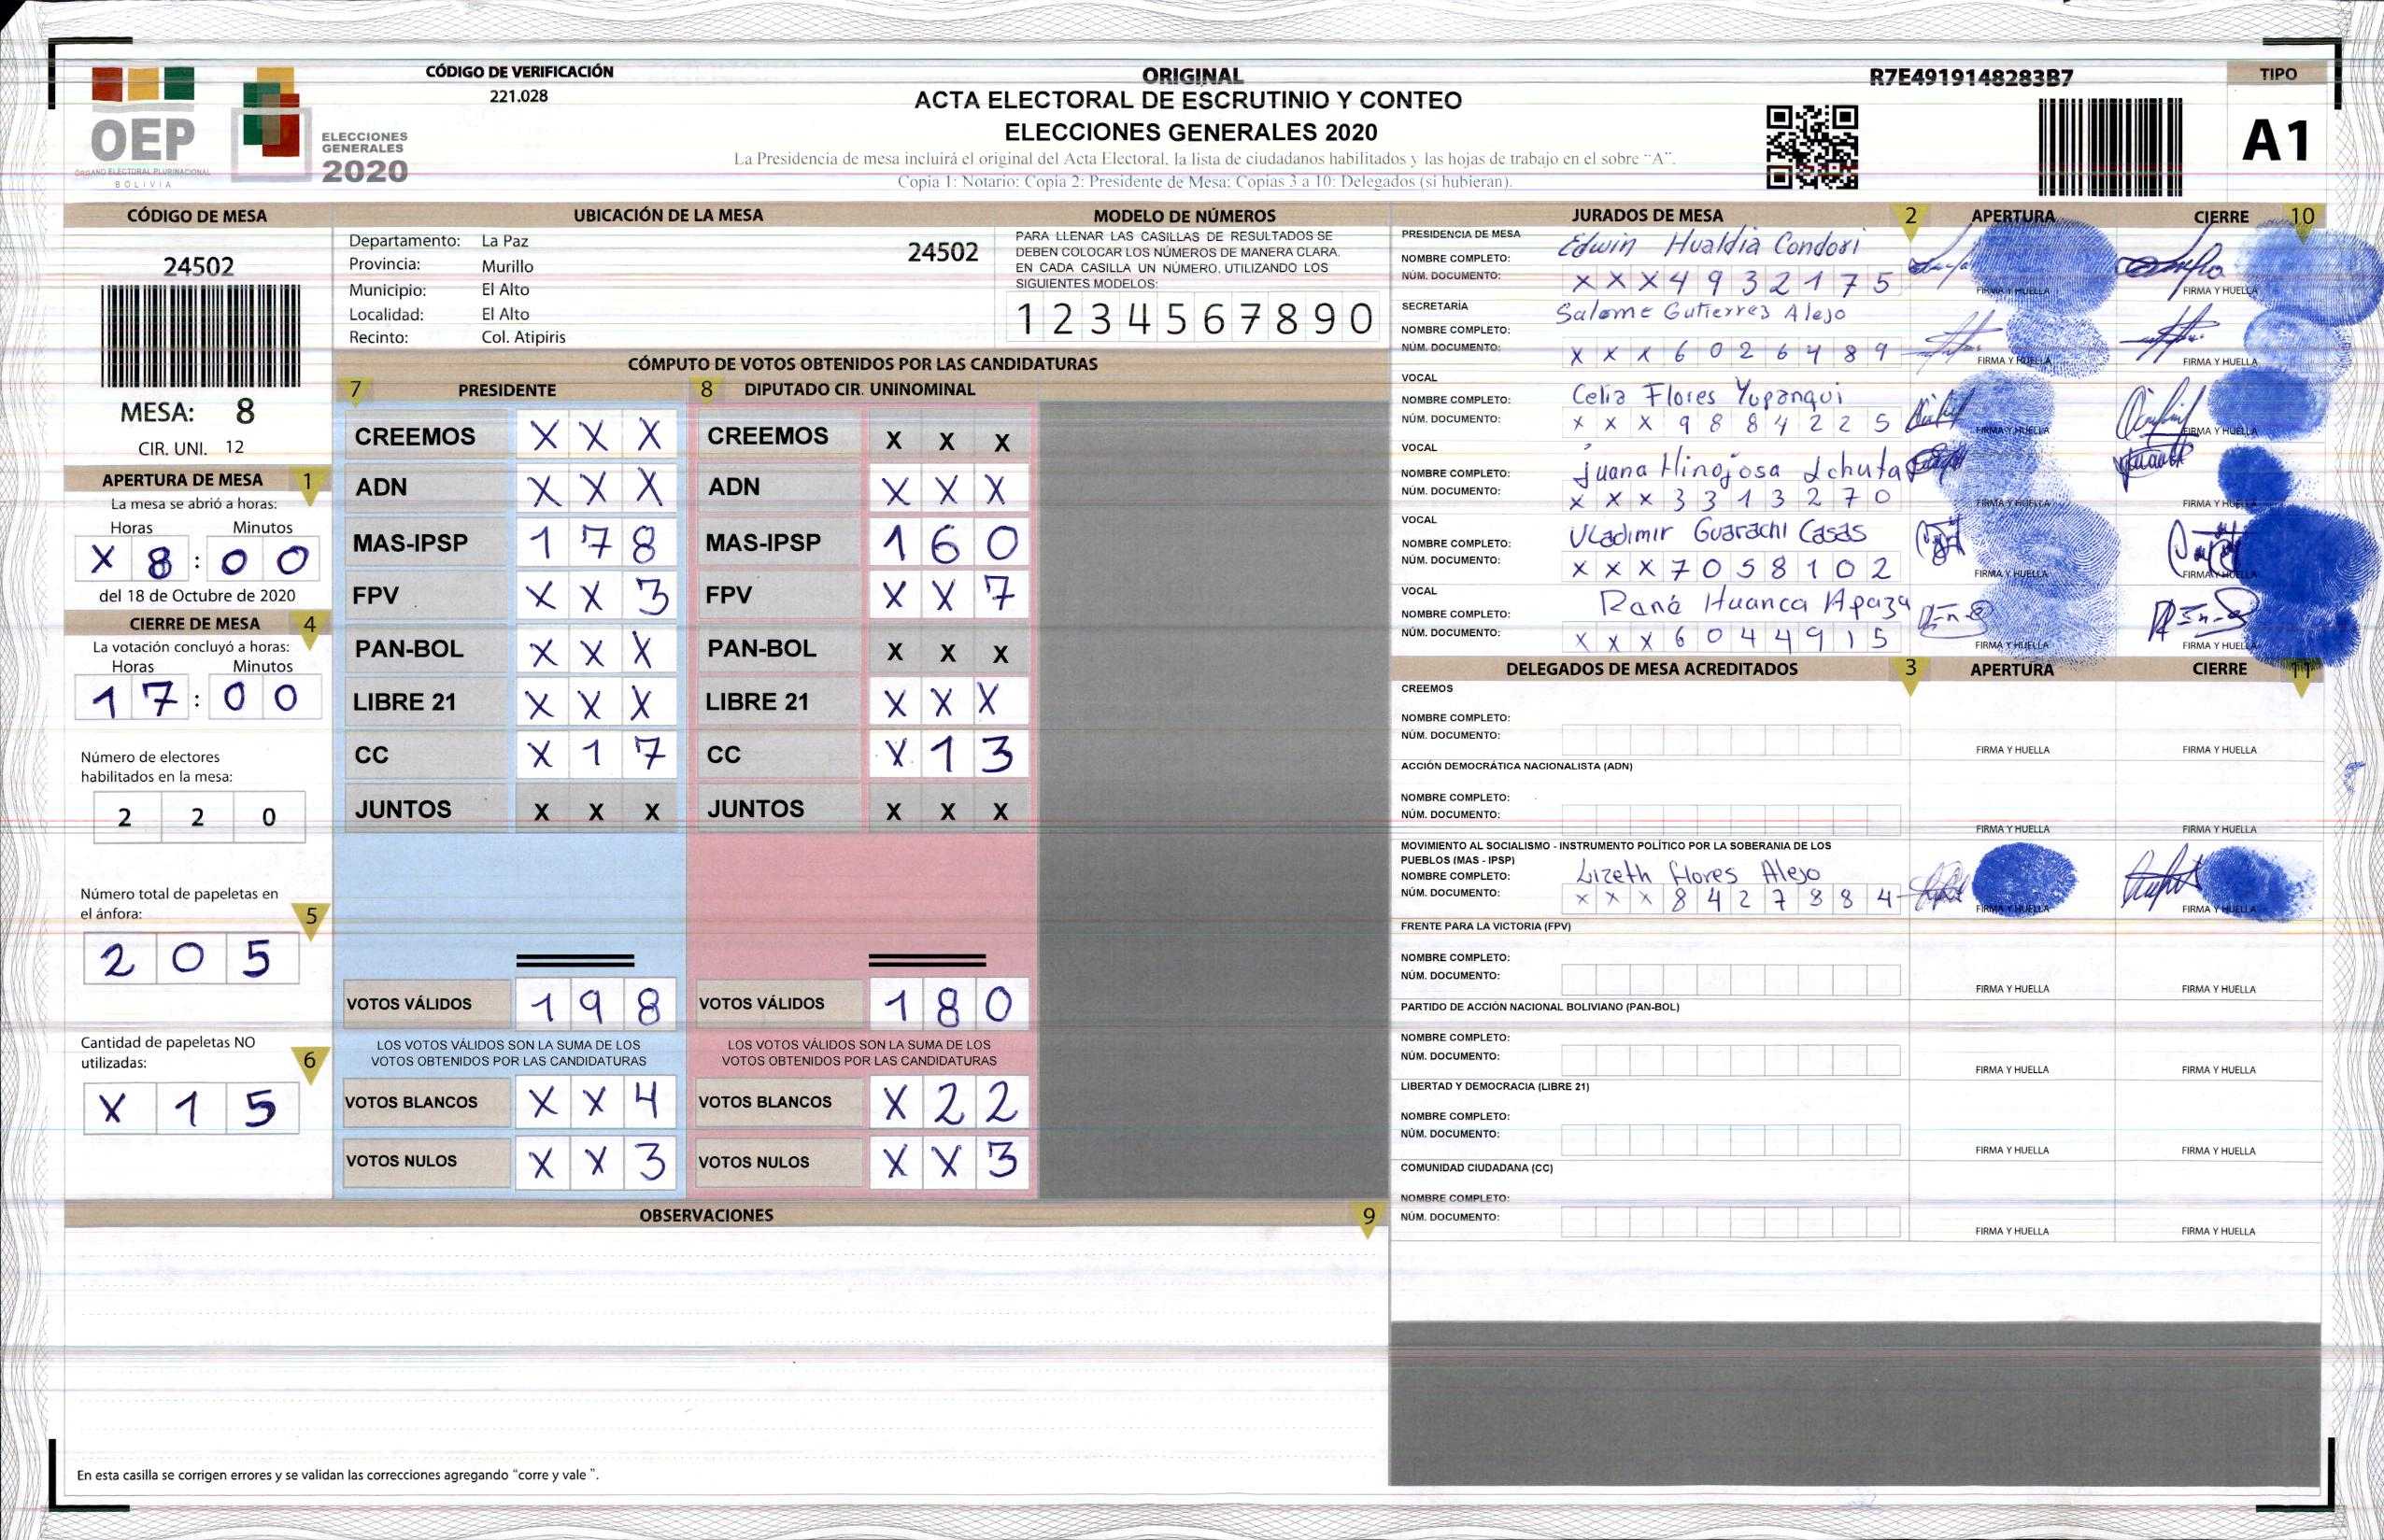 OEP
ÓRGANO ELECTORAL PLURINACIONAL
BOLIVIA
ELECCIONES
GENERALES
2020
CÓDIGO DE VERIFICACIÓN
221.028
ORIGINAL
ACTA ELECTORAL DE ESCRUTINIO Y CONTEO
ELECCIONES GENERALES 2020
La Presidencia de mesa incluirá el original del Acta Electoral, la lista de ciudadanos habilitados y las hojas de trabajo en el sobre "A".
Copia 1: Notario; Copia 2: Presidente de Mesa; Copias 3 a 10: Delegados (si hubieran).
R7E4919148283B7
TIPO
A1
CÓDIGO DE MESA
24502
MESA: 8
CIR. UNI. 12
APERTURA DE MESA 1
La mesa se abrió a horas:
Horas Minutos
X 8 : 0 0
del 18 de Octubre de 2020
CIERRE DE MESA 4
La votación concluyó a horas:
Horas Minutos
1 7 : 0 0
Número de electores
habilitados en la mesa:
2 2 0
Número total de papeletas en
el ánfora: 5
2 0 5
Cantidad de papeletas NO
utilizadas: 6
X 1 5
UBICACIÓN DE LA MESA
Departamento: La Paz
24502
Provincia: Murillo
Municipio: El Alto
Localidad: El Alto
Recinto: Col. Atipiris
MODELO DE NÚMEROS
PARA LLENAR LAS CASILLAS DE RESULTADOS SE
DEBEN COLOCAR LOS NÚMEROS DE MANERA CLARA.
EN CADA CASILLA UN NÚMERO, UTILIZANDO LOS
SIGUIENTES MODELOS:
1 2 3 4 5 6 7 8 9 0
CÓMPUTO DE VOTOS OBTENIDOS POR LAS CANDIDATURAS
7 PRESIDENTE 8 DIPUTADO CIR. UNINOMINAL
CREEMOS X X X CREEMOS X X X
ADN X X X ADN X X X
MAS-IPSP 1 7 8 MAS-IPSP 1 6 0
FPV X X 3 FPV X X 7
PAN-BOL X X X PAN-BOL X X X
LIBRE 21 X X X LIBRE 21 X X X
CC X 1 7 CC X 1 3
JUNTOS X X X JUNTOS X X X
VOTOS VÁLIDOS 1 9 8 VOTOS VÁLIDOS 1 8 0
LOS VOTOS VÁLIDOS SON LA SUMA DE LOS LOS VOTOS VÁLIDOS SON LA SUMA DE LOS
VOTOS OBTENIDOS POR LAS CANDIDATURAS VOTOS OBTENIDOS POR LAS CANDIDATURAS
VOTOS BLANCOS X X 4 VOTOS BLANCOS X 2 2
VOTOS NULOS X X 3 VOTOS NULOS X X 3
OBSERVACIONES 9
En esta casilla se corrigen errores y se validan las correcciones agregando "corre y vale ".
JURADOS DE MESA 2 APERTURA CIERRE 10
PRESIDENCIA DE MESA
NOMBRE COMPLETO: Edwin Hualdia Condori
NÚM. DOCUMENTO: X X X 4 9 3 2 1 7 5 FIRMA Y HUELLA FIRMA Y HUELLA
SECRETARÍA
NOMBRE COMPLETO: Salome Gutierres Alejo
NÚM. DOCUMENTO: X X X 6 0 2 6 4 8 9 FIRMA Y HUELLA FIRMA Y HUELLA
VOCAL
NOMBRE COMPLETO: Celia Flores Yupanqui
NÚM. DOCUMENTO: X X X 9 8 8 4 2 2 5 FIRMA Y HUELLA FIRMA Y HUELLA
VOCAL
NOMBRE COMPLETO: Juana Hinojosa
NÚM. DOCUMENTO: X X X 3 3 1 3 2 7 0 FIRMA Y HUELLA FIRMA Y HUELLA
VOCAL
NOMBRE COMPLETO: Vladimir Guarachi Casas
NÚM. DOCUMENTO: X X X 7 0 5 8 1 0 2 FIRMA Y HUELLA FIRMA Y HUELLA
VOCAL
NOMBRE COMPLETO: Raná Huanca Apaza
NÚM. DOCUMENTO: X X X 6 0 4 4 9 1 5 FIRMA Y HUELLA FIRMA Y HUELLA
DELEGADOS DE MESA ACREDITADOS 3 APERTURA CIERRE 11
CREEMOS
NOMBRE COMPLETO:
NÚM. DOCUMENTO: FIRMA Y HUELLA FIRMA Y HUELLA
ACCIÓN DEMOCRÁTICA NACIONALISTA (ADN)
NOMBRE COMPLETO:
NÚM. DOCUMENTO: FIRMA Y HUELLA FIRMA Y HUELLA
MOVIMIENTO AL SOCIALISMO - INSTRUMENTO POLÍTICO POR LA SOBERANIA DE LOS
PUEBLOS (MAS - IPSP)
NOMBRE COMPLETO: Lizeth Flores Alejo
NÚM. DOCUMENTO: X X X 8 4 2 7 8 8 4 FIRMA Y HUELLA FIRMA Y HUELLA
FRENTE PARA LA VICTORIA (FPV)
NOMBRE COMPLETO:
NÚM. DOCUMENTO: FIRMA Y HUELLA FIRMA Y HUELLA
PARTIDO DE ACCIÓN NACIONAL BOLIVIANO (PAN-BOL)
NOMBRE COMPLETO:
NÚM. DOCUMENTO: FIRMA Y HUELLA FIRMA Y HUELLA
LIBERTAD Y DEMOCRACIA (LIBRE 21)
NOMBRE COMPLETO:
NÚM. DOCUMENTO: FIRMA Y HUELLA FIRMA Y HUELLA
COMUNIDAD CIUDADANA (CC)
NOMBRE COMPLETO:
NÚM. DOCUMENTO: FIRMA Y HUELLA FIRMA Y HUELLA